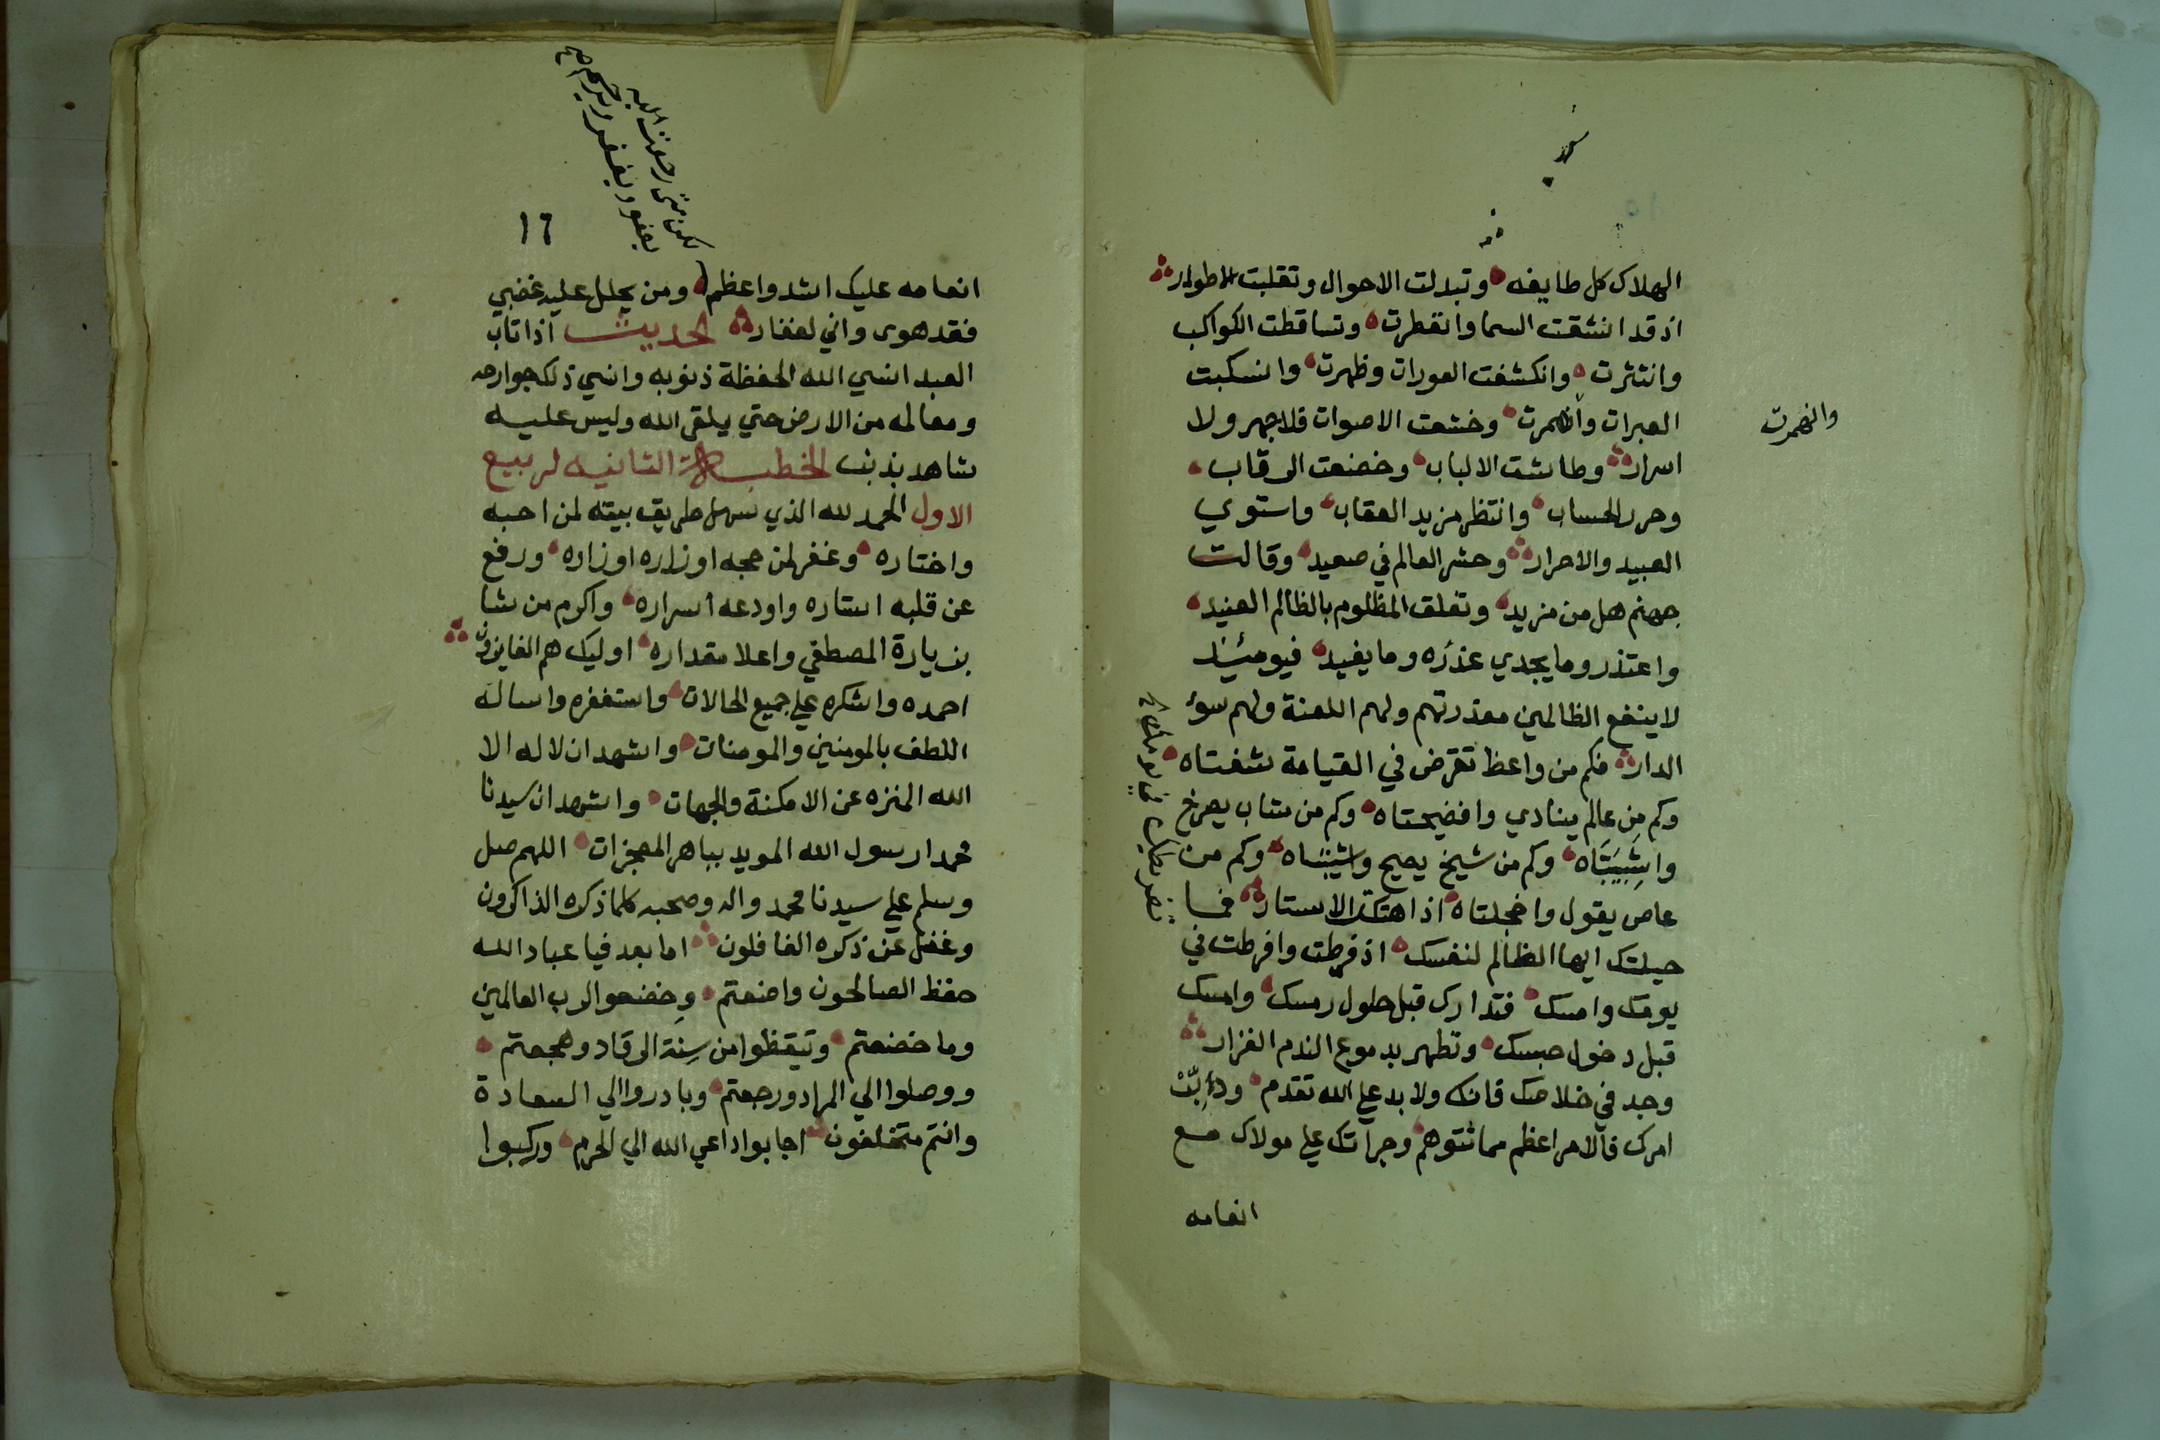 الهلاك كل طايفه وتبدلت الاحوال وتقلبت الاطوار
اذ قد انشقت السما وانفطرت وتساقطت الكواكب
وانتثرت وانكشفت العورات وظهرت وانسكبت
العبرات وانهمرت وخشعت الاصوات فلا جهر ولا
وانهمرت
اسرار وطاشت الالباب وخضعت الرقاب
وحرر الحساب وانتظر مزيد العقاب واستوي
العبيد والاحرار وحشر العالم في صعيد وقالت
جهنم هل من مزيد وتعلق المظلوم بالظالم العنيد
واعتذر وما يجدي عذره وما يفيد فيومئذ
لا ينفع الظالمين معذرتهم ولهم اللعنة ولهم سوء
الدار فكم من واعظ تقرض في القيامة شفتاه
وكم من عالم ينادي وافضيحتاه وكم من شاب يصرخ
واشبيبتاه وكم من شيخ يصيح واشيبتاه وكم من
عاص يقول واخجلتاه اذا هتكت الاستار فما
حيلتك ايها الظالم لنفسك اذ فرطت وافرطت في
يومك وامسك فتدارك قبل حلول رمسك وامسك
قبل دخول حبسك وتطهر بدموع الندم الغزار
وجد في خلاصك فانك ولا بد علي الله تقدم
امرك فالامر اعظم مما تتوهم وجراتك علي مولاك مع
انعامه
١٦
انعامه عليك اشد واعظم ومن يحلل عليه غضبي
فقد هوى واني لغفار الحديث اذا تاب
العبد انسي الله الحفظة ذنوبه وانسي ذلك جوارحه
ومعالمه من الارض حتي يلقى الله وليس عليه
شاهد بذنب الخطبة الثانيه لربيع
الاول الحمد لله الذي سهل طريق بيته لمن احبه
واختاره وغفر لمن حجه اوزاره اوزاره ورفع
عن قلبه استاره واودعه اسراره واكرم من شا
بزيارة المصطفي واعلا مقداره اوليك هم الفايزون
احمده واشكره علي جميع الحالات واستغفره واساله
اللطف بالمومنين والمومنات واشهد ان لا له الا
الله المنزه عن الامكنة والجهات واشهد ان سيدنا
محمدا رسول الله المويد بباهر المعجزات اللهم صل
وسلم علي سيدنا محمد واله وصحبه كلما ذكره الذاكرون
وغفل عن ذكره الغافلون اما بعد فيا عباد الله
حفظ الصالحون واضعتم وخضعوا لرب العالمين
وما خضعتم وتيقظوا من سنة الرقاد وهجعتم
ووصلوا الي المراد ورجعتم وبادروا الي السعادة
وانتم متخلفون اجابوا داعي الله الي الحرم وركبوا